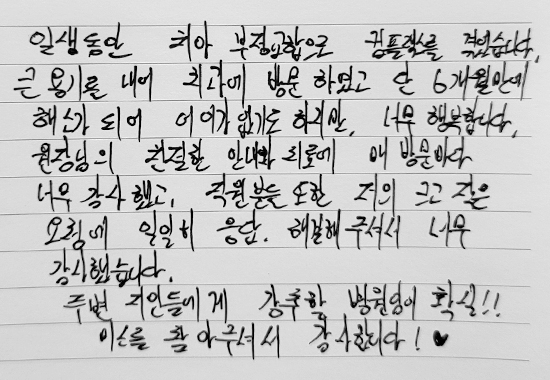 일생동안 치아 부정교합으로 컴플렉스를 겪었습니다.
큰 용기를 내어 치과에 방문 하였고 단 6개월만에
해소가 되어 어이가 없기도 하지만, 너무 행복합니다.
원장님의 친절한 안내와 치료에 매 방문마다
너무 감사했고, 직원분들 또한 저의 크고 작은
요청에 일일히 응답, 해결해주셔서 너무
감사했습니다.
주변 지인들에게 강추할 병원임이 확실!!
미소를 찾아주셔서 감사합니다! ♥